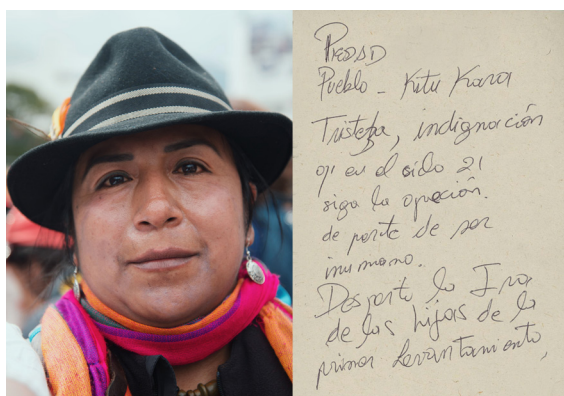 Piedad
Pueblo - Kitu Kara
Tristeza, indignación
q' en el siglo 21
siga la opreción.
de parte de ser
inumano.
Desperto la Ira
de las hijas de la
primer Levantamiento,